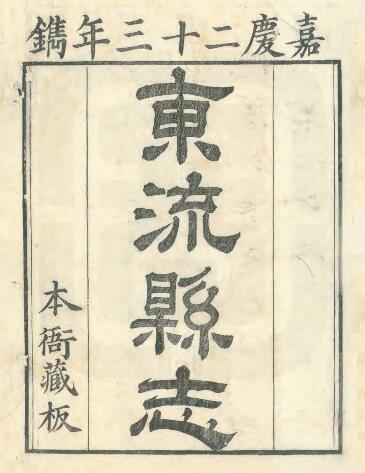 嘉慶二十三年鐫
東流縣志
本衙藏板